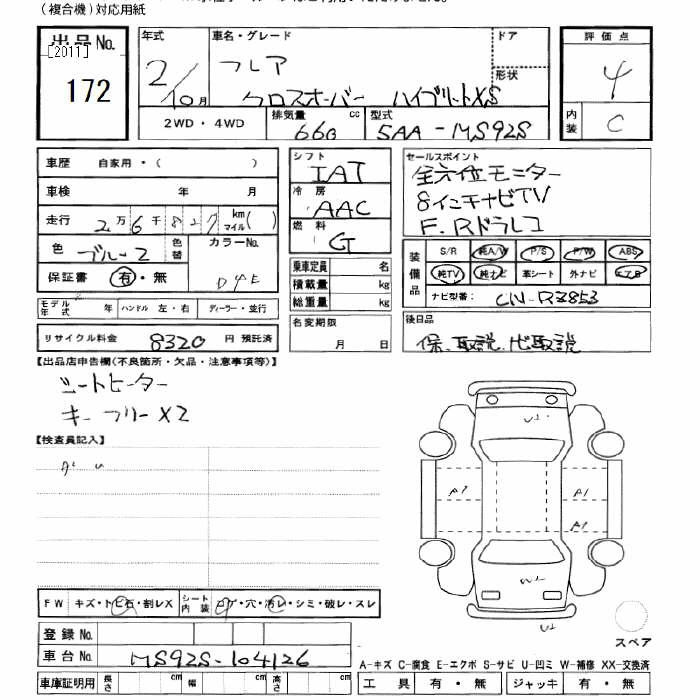 （複合機）対応用紙
出品No.
[2011]
172
年式
2/10月
車名・グレード
フレア
クロスオーバー ハイブリットXS
ドア
形状
評価点
4
内装
C
2WD・4WD
排気量
660
cc
型式
5AA-MS92S
車歴 自家用・( )
車検 年 月
走行 2万6千827 km マイル( )
色 ブルー2 色替 カラーNo.
DYE
保証書 有・無
モデル年式 年 ハンドル 左・右 ディーラー・並行
リサイクル料金 8320 円 預託済
シフト
IAT
冷房
AAC
燃料
G
乗車定員 名
積載量 kg
総重量 kg
名変期限
月 日
セールスポイント
全方位モニター
8インチナビTV
F.Rドラレコ
装備品
S/R 純A/W P/S P/W ABS
純TV 純ナビ 革シート 外ナビ エアB
ナビ型番: CN-RZ853
後日品
保、取説、ナビ取説
【出品店申告欄(不良箇所・欠品・注意事項等)】
シートヒーター
キーフリーX2
【検査員記入】
U1
A1 A1
A1
W1
U1
スペア
FW キズ・トビ石・割レX シート内装 コゲ・穴・汚レ・シミ・破レ・スレ
登録No.
車台No. MS92S-104126
車庫証明用 長さ cm 幅 cm 高さ cm
A-キズ C-腐食 E-エクボ S-サビ U-凹ミ W-補修 XX-交換済
工具 有・無 ジャッキ 有・無